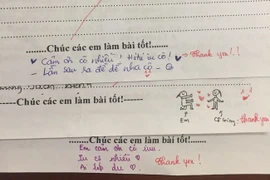 ........Chúc các em làm bài tốt!......
Cảm ơn cô nhiều ! Hihi iu cô !
Thank you ! !
- Lần sau ra đề dễ nha cô -
---Chúc các em làm bài tốt!------
Em
Cô giáo
.......Chúc các em làm bài tốt!......
Em cảm ơn cô iu.
Iu cô nhiều
Thank you !